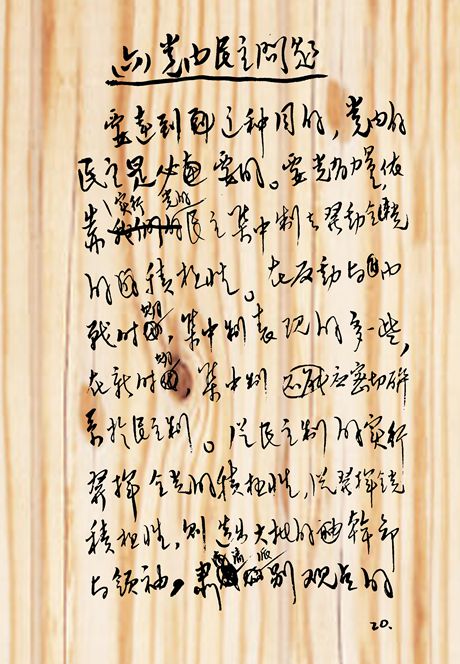 (六)党内民主问题
要达到这种目的,党内的
民主是必要的。要党有力量,依
靠实行党的民主集中制去發动全党
的积极性。在反动与内
战时期,集中制表现的多一些,
在新时期,集中制应密切联
系於民主制。从民主制的实行
發挥全党的积极性,从發挥党
积极性,造出大批的幹部
与领袖,肃清派别观点的
20.